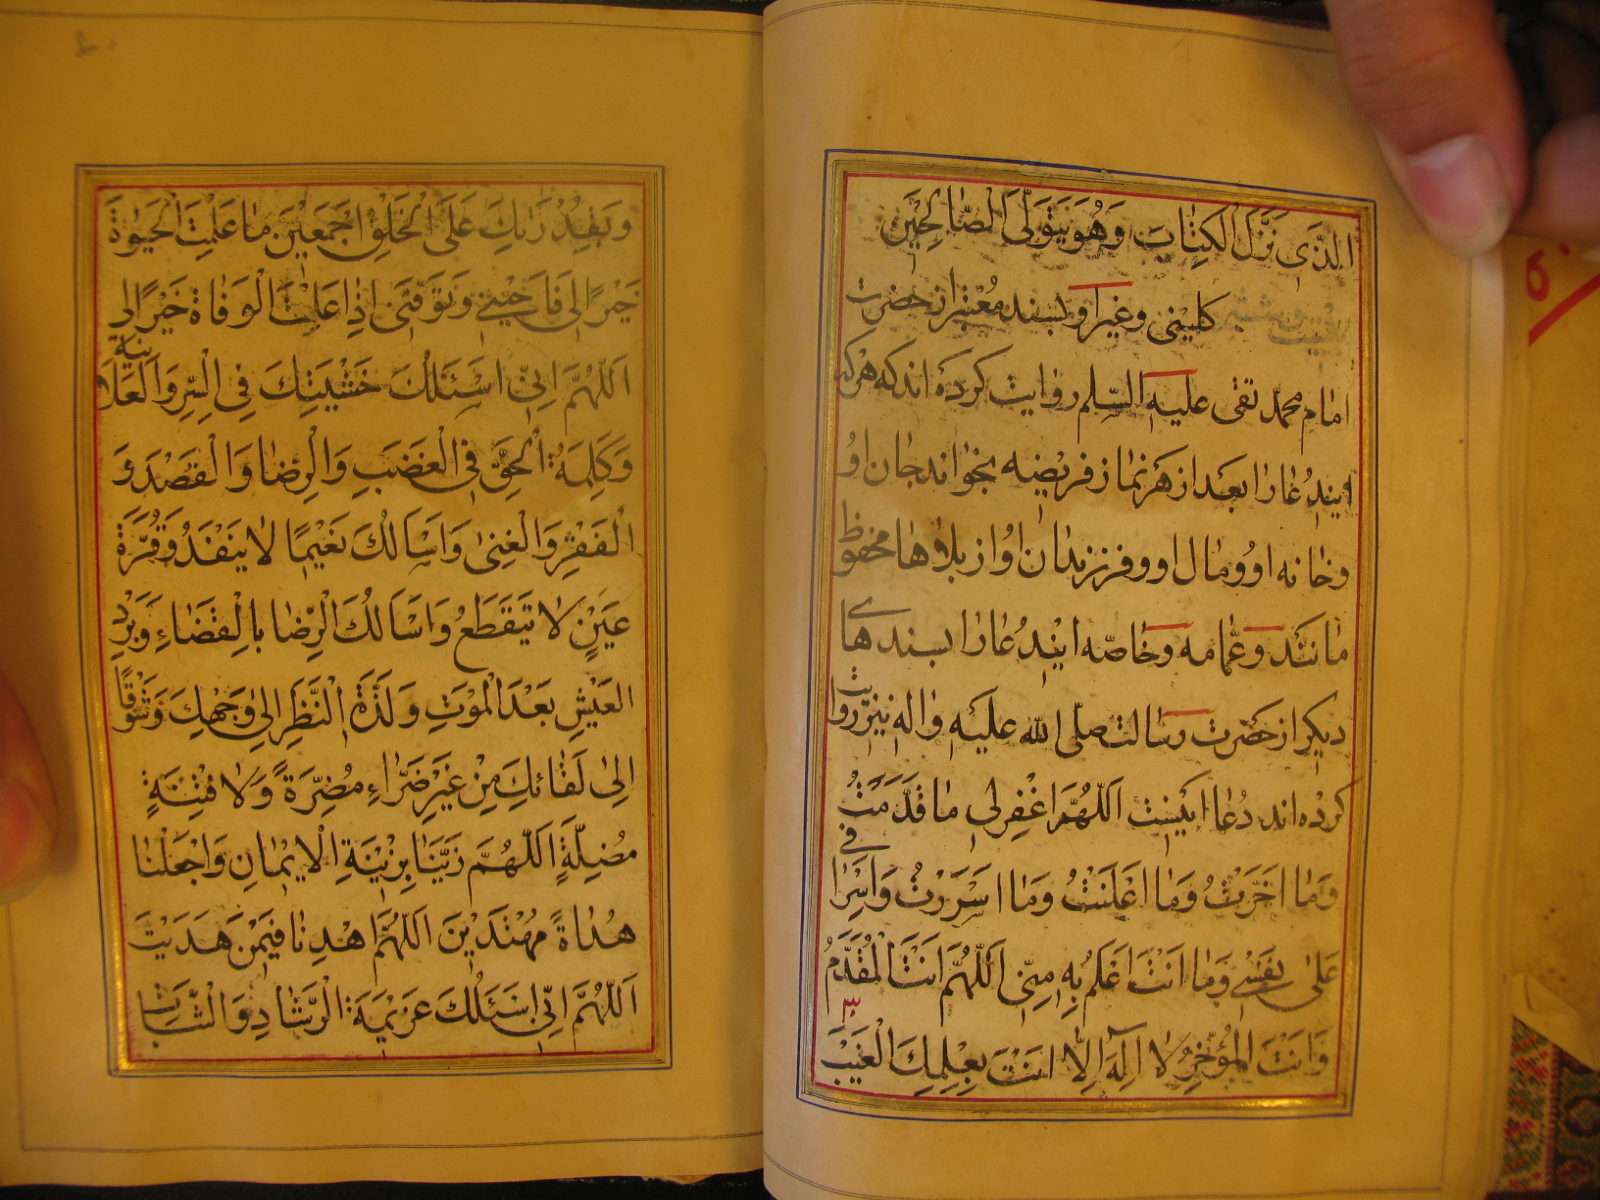 الَّذِی نَزَّلَ الْکِتابَ وَهُوَ یَتَوَلَّی الصّالِحینَ
بیست و ششم کلینی وغیر او بسند معتبر از حضرت
امام محمد تقی علیه السّلم روایت کرده اند که هر که
ایندُعا را بعد از هر نماز فریضه بخواند جان او
وخانه او و مال او و فرزندان او از بلاها محفوظ
مانند و عامه وخاصّه ایندُعا را بسند های
دیکر از حضرت رسالت صلی الله علیه واله نیز روایت
کرده اند دُعا اینست اَللّهُمَّ اغْفِرلی ما قَدَّمْتُ
وَما اَخَّرْتُ وَما اَعْلَنْتُ وَما اَسْرَرْتُ وَاِسْرافی
عَلی نَفْسی وَما اَنْتَ اَعْلَمُ بِهِ مِنّی اَللّهُمَّ اَنْتَ الْمُقَدِّمُ
٣
وَاَنْتَ الْمُؤَخِّرُ لا اِلهَ اِلّا اَنْتَ بِعِلْمِکَ الْغَیْبَ
وَبِقُدْرَتِكَ عَلَی الْخَلْقِ اَجْمَعینَ ما عَلِمْتَ الْحَیٰوةَ
خَیْرًا لی فَاَحْیِنی وَتَوَفَّنی اِذا عَلِمْتَ الْوَفاةَ خَیْرًا لی
اَللّهُمَّ اِنّی اَسْئَلُكَ خَشْیَتَكَ فِی السِّرِّ وَالْعَلانیة
وَکَلِمَةَ الْحَقِّ فِی الْغَضَبِ وَالرِّضا وَالْقَصْدَ وَ
الْفَقْرِ وَالْغِنی وَاَسْاَلُكَ نَعیمًا لا یَنْفَدُ وَقُرَّةَ
عَیْنٍ لا تَنْقَطِعُ وَاَسْاَلُكَ الرِّضا بِالْقَضاءِ وَبَرْدَ
الْعَیْشِ بَعْدَ الْمَوْتِ وَلَذَّةَ النَّظَرِ اِلی وَجْهِكَ وَشَوْقًا
اِلی لَقائِكَ مِنْ غَیْرِ ضَرّاءٍ مُضِرَّةٍ وَلا فِتْنَةٍ
مُضِلَّةٍ اَللّهُمَّ زَیِّنّا بِزینَةِ الْایمانِ وَاجْعَلْنا
هُداةً مُهْتَدینَ اَللّهُمَّ اهْدِنا فیمَنْ هَدَیْتَ
اَللّهُمَّ اِنّی اَسْئَلُكَ عَزیمَةَ الرَّشادِ وَالثَّباتَ